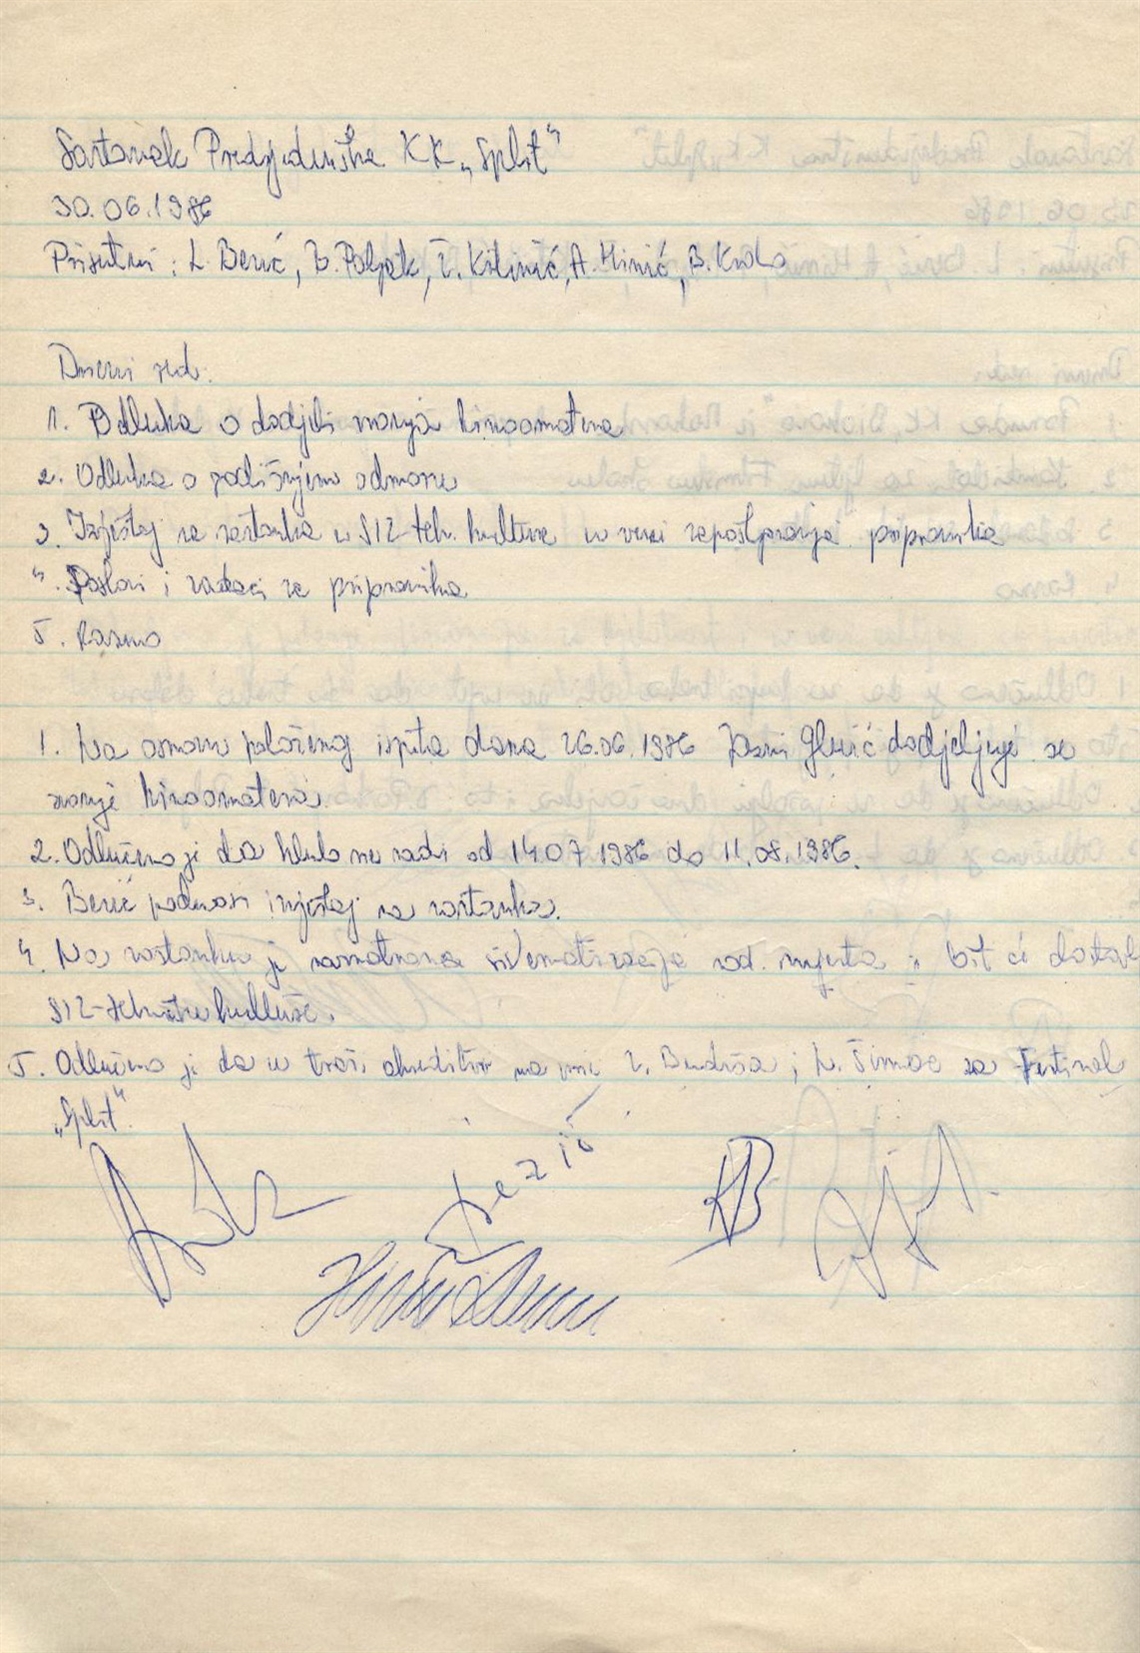 Sastanak Predsjedništva KK „Split"
30.06.1986
Prisutni: L. Berić, B. Poljak, Ž. Kitinić, A. Hinić, B. Krolo
Dnevni red:
1. Odluka o dodjeli zvanja kinoamatera
2. Odluka o godišnjem odmoru
3. Izvještaj sa sastanka u SIZ teh. kulture u vezi zapošljavanja pripravnika
4. Poslovi i zadaci za pripravnika
5. Razno
1. Na osnovu položenog ispita dana 26.06.1986 Jasni Glušić dodjeljuje se
zvanje kinoamatera.
2. Odlučeno je da klub ne radi od 14.07 1986 do 11.08.1986.
3. Berić podnosi izvještaj sa sastanka.
4. Na sastanku je razmotrena sistematizacija rad. mjesta i bit će
SIZ-tehničke kulture.
5. Odlučeno je da se traži akreditiv na ime Z. Budiša i L. Šimac za Festival
„Split".